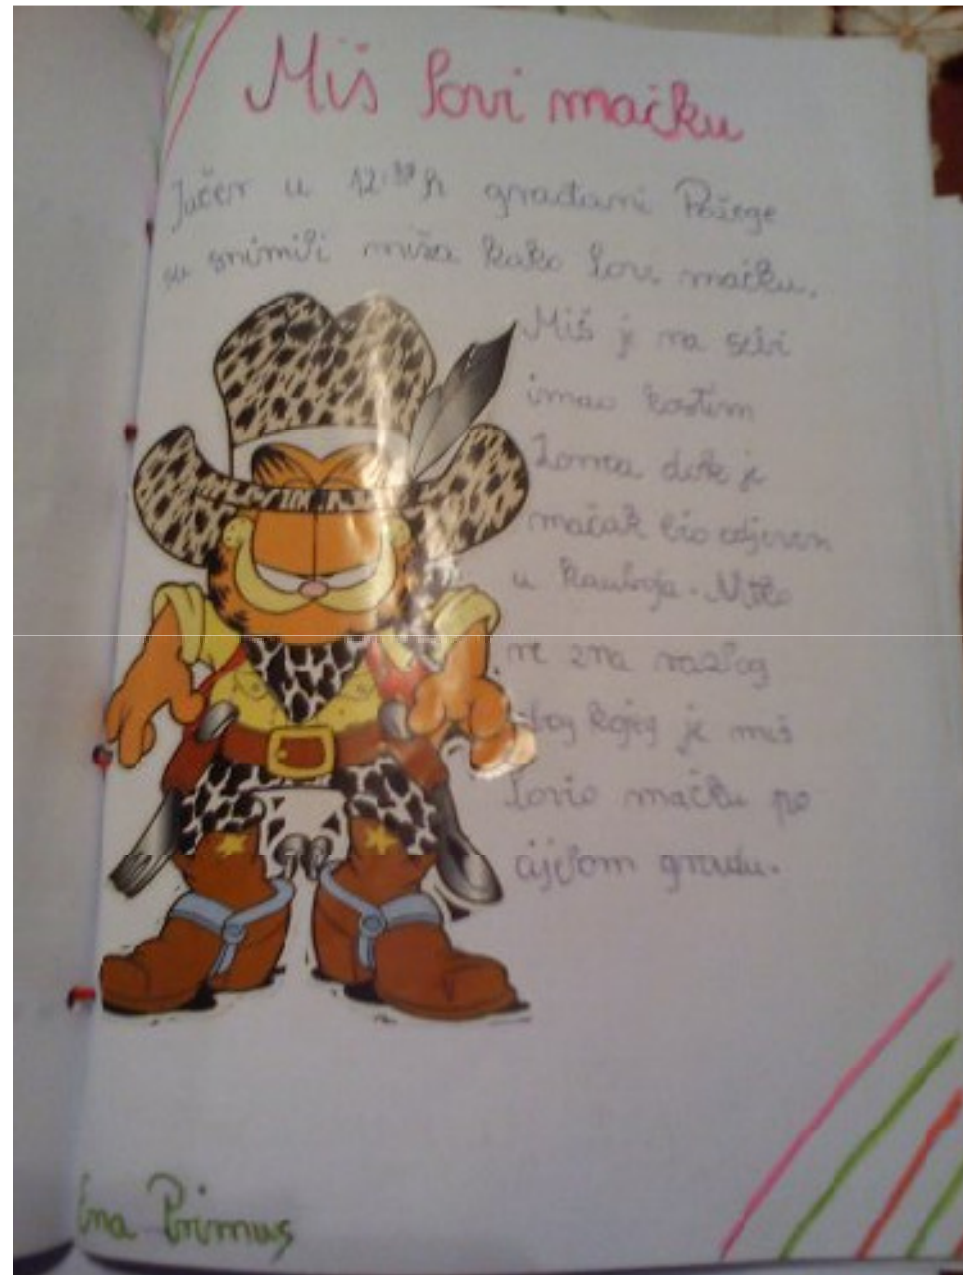 Miš lovi mačku
Jučer u 12:30 h građani Požege
su snimili miša kako lovi mačku.
Miš je na sebi
imao kostim
Zorroa dok je
mačak bio odjeven
u kauboja. Nitko
ne zna razlog
zbog kojeg je miš
lovio mačku po
cijelom gradu.
Ena Primus